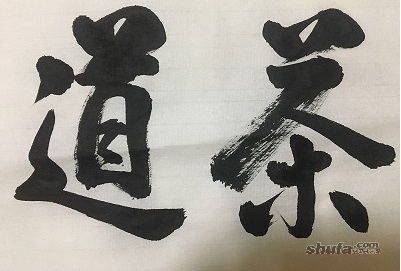 茶道
shufa.com